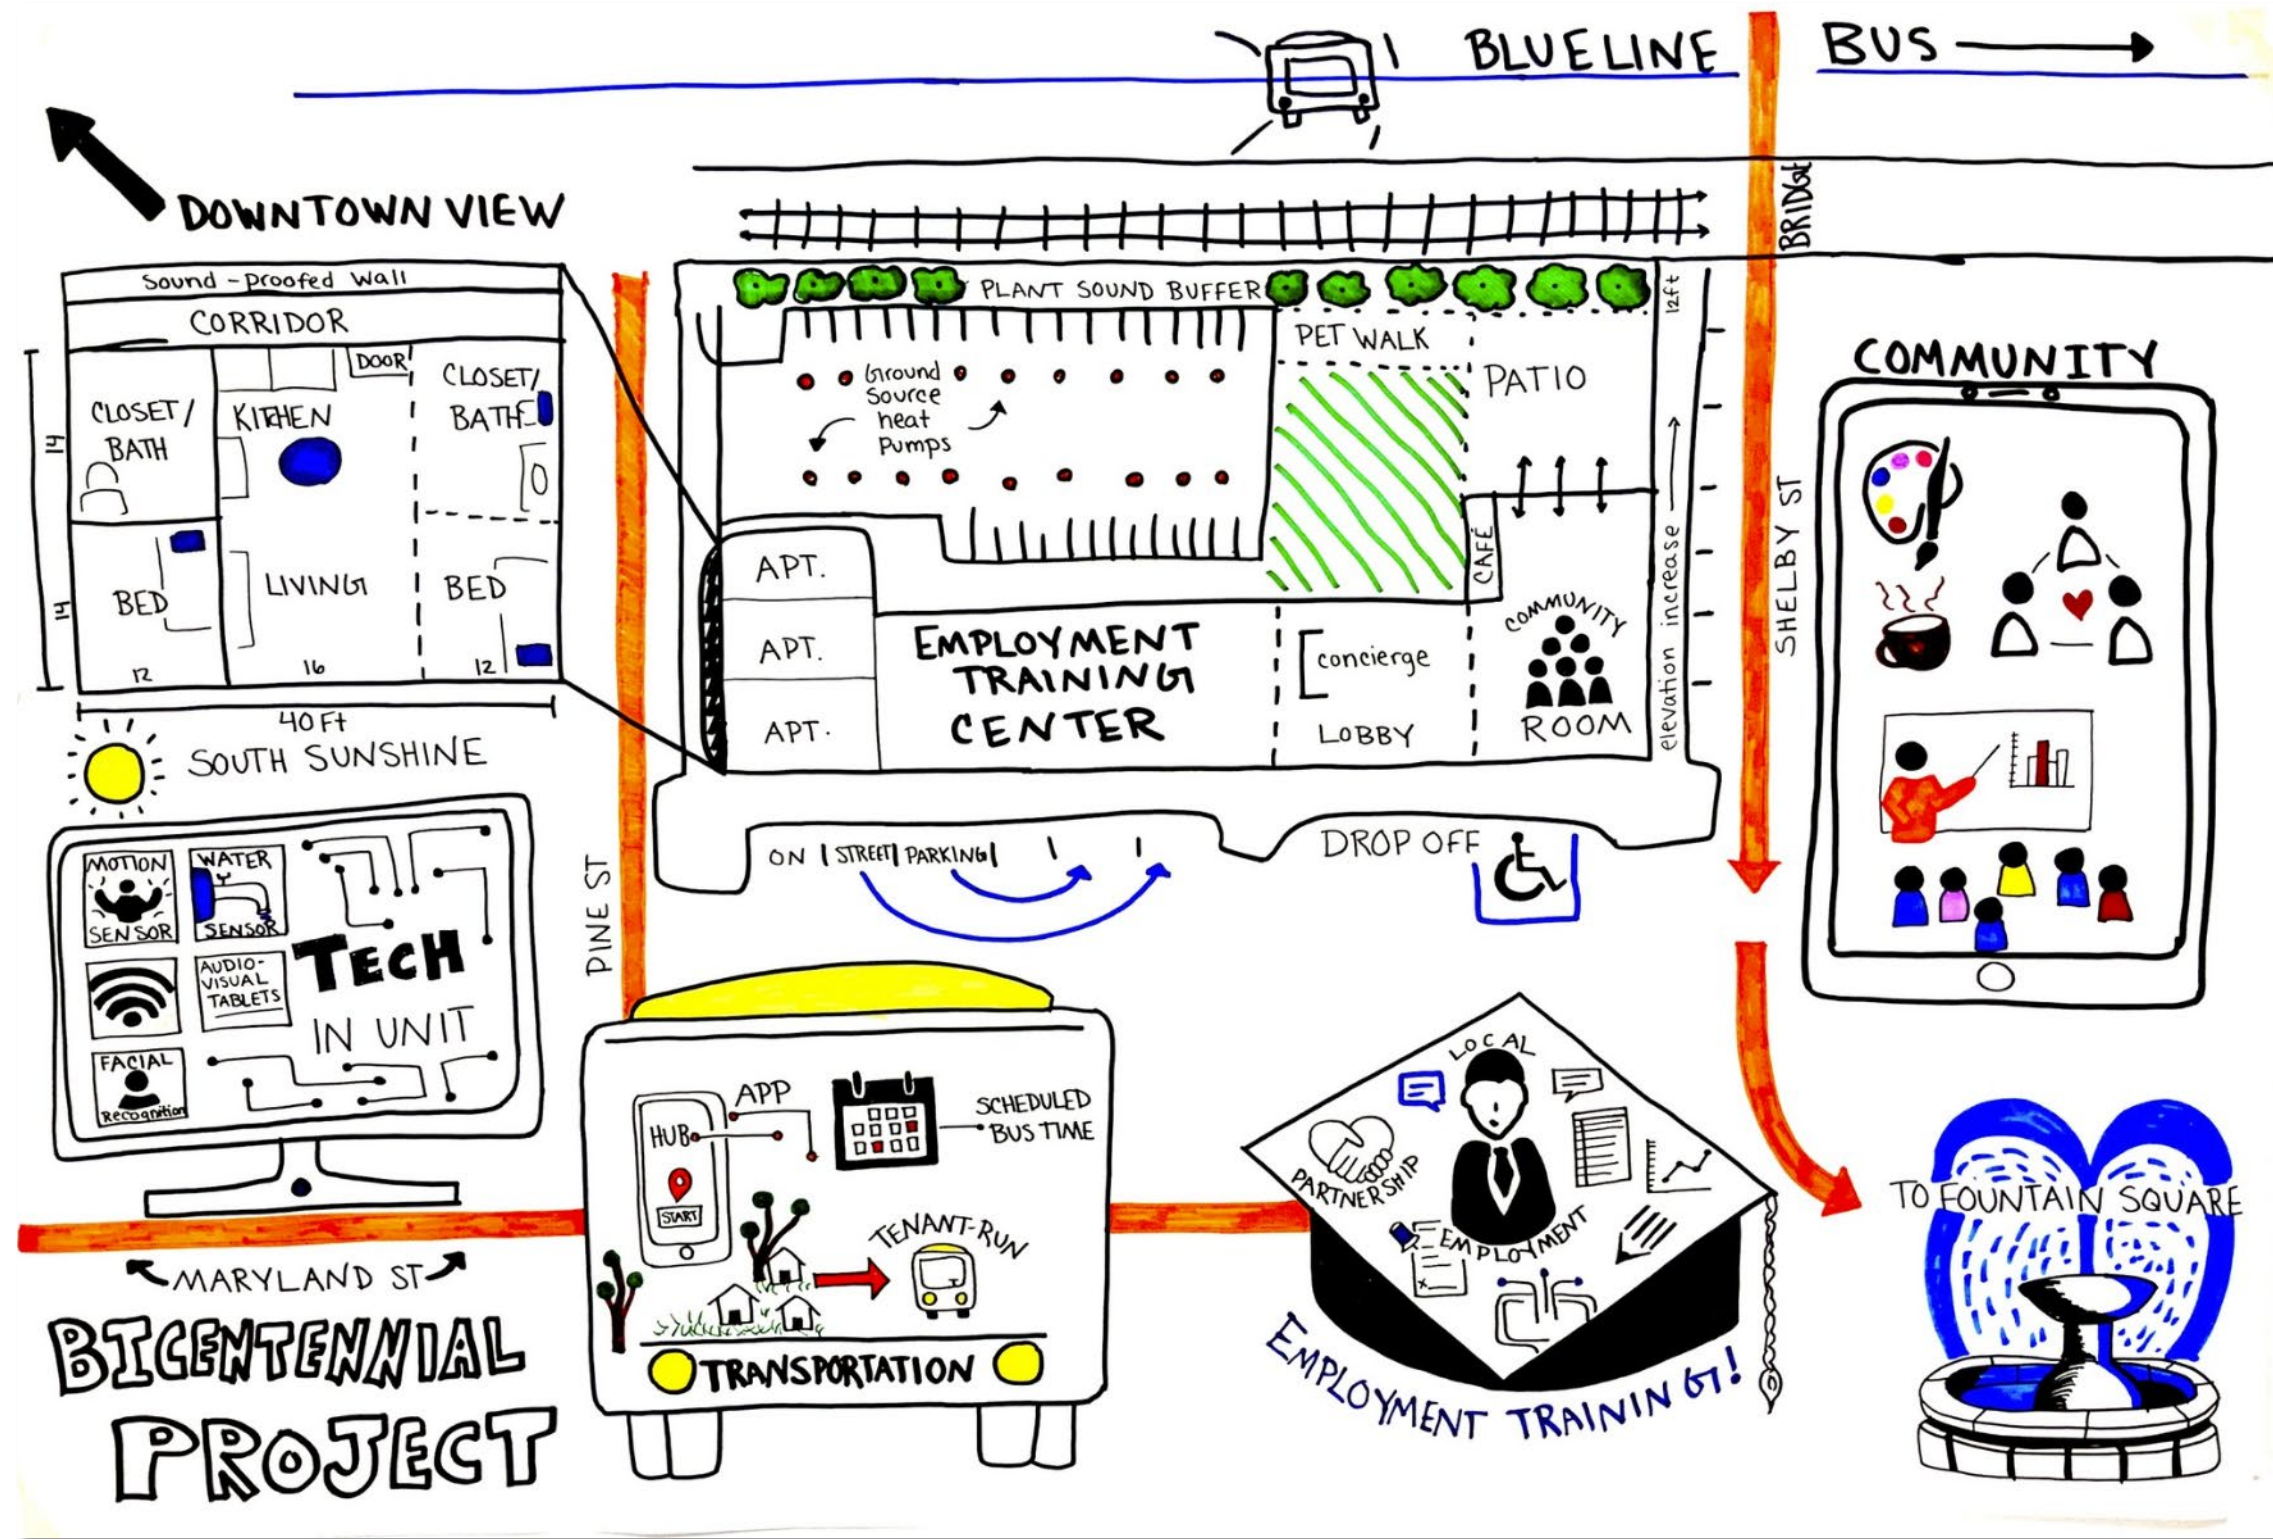 BLUELINE
BUS
DOWNTOWN VIEW
BRIDGE
Sound-proofed Wall
CORRIDOR
DOOR
CLOSET/
BATH
KITCHEN
CLOSET/
BATH
14
14
BED
LIVING
BED
12
16
12
40 Ft
SOUTH SUNSHINE
PLANT SOUND BUFFER
12ft
PET WALK
PATIO
Ground
Source
heat
Pumps
CAFÉ
APT.
APT.
APT.
EMPLOYMENT
TRAINING
CENTER
concierge
LOBBY
COMMUNITY
ROOM
elevation increase
SHELBY ST
COMMUNITY
ON STREET PARKING
DROP OFF
PINE ST
MOTION
SENSOR
WATER
SENSOR
AUDIO-
VISUAL
TABLETS
FACIAL
Recognition
TECH
IN UNIT
MARYLAND ST
BICENTENNIAL
PROJECT
HUB
APP
START
SCHEDULED
BUS TIME
TENANT-RUN
TRANSPORTATION
LOCAL
PARTNERSHIP
EMPLOYMENT
EMPLOYMENT TRAINING!
TO FOUNTAIN SQUARE